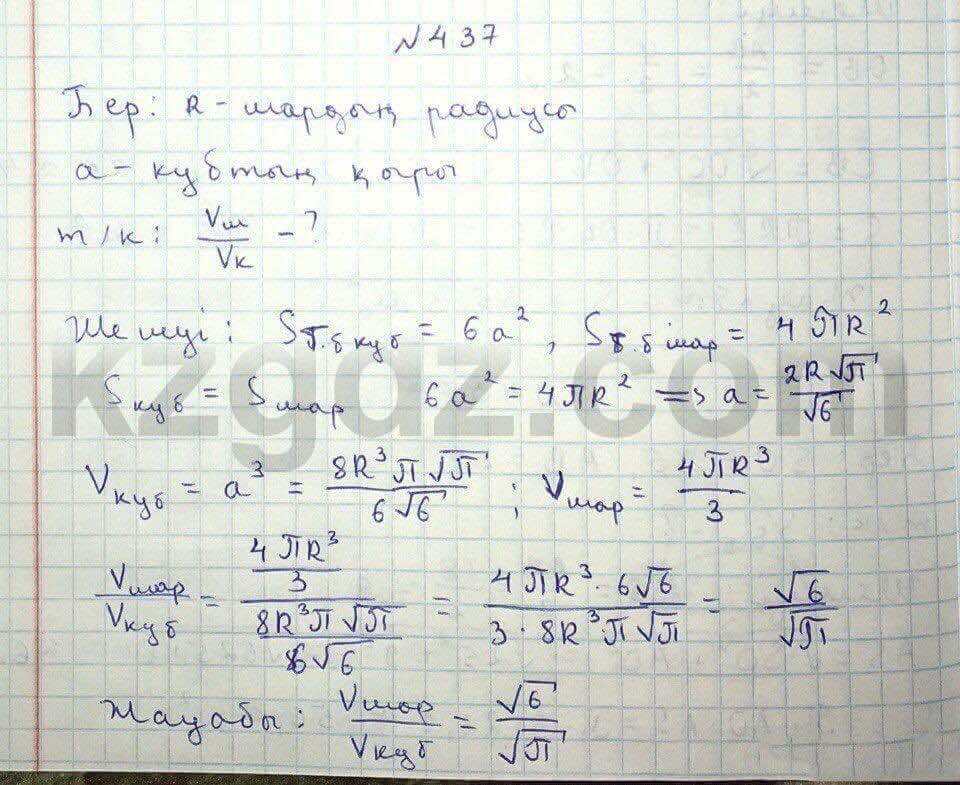 N 437
Бер: R - шардың радиусы
a - кубтың қыры
т/к: Vш/Vк - ?
Шешуі: Sт.б куб = 6a², Sт.б шар = 4πR²
Sкуб = Sшар 6a² = 4πR² => a = 2R√π/√6
kzgdz.com
Vкуб = a³ = 8R³π√π/6√6 ; Vшар = 4πR³/3
Vшар/Vкуб = (4πR³/3)/(8R³π√π/6√6) = 4πR³·6√6/3·8R³π√π = √6/√π
Жауабы: Vшар/Vкуб = √6/√π